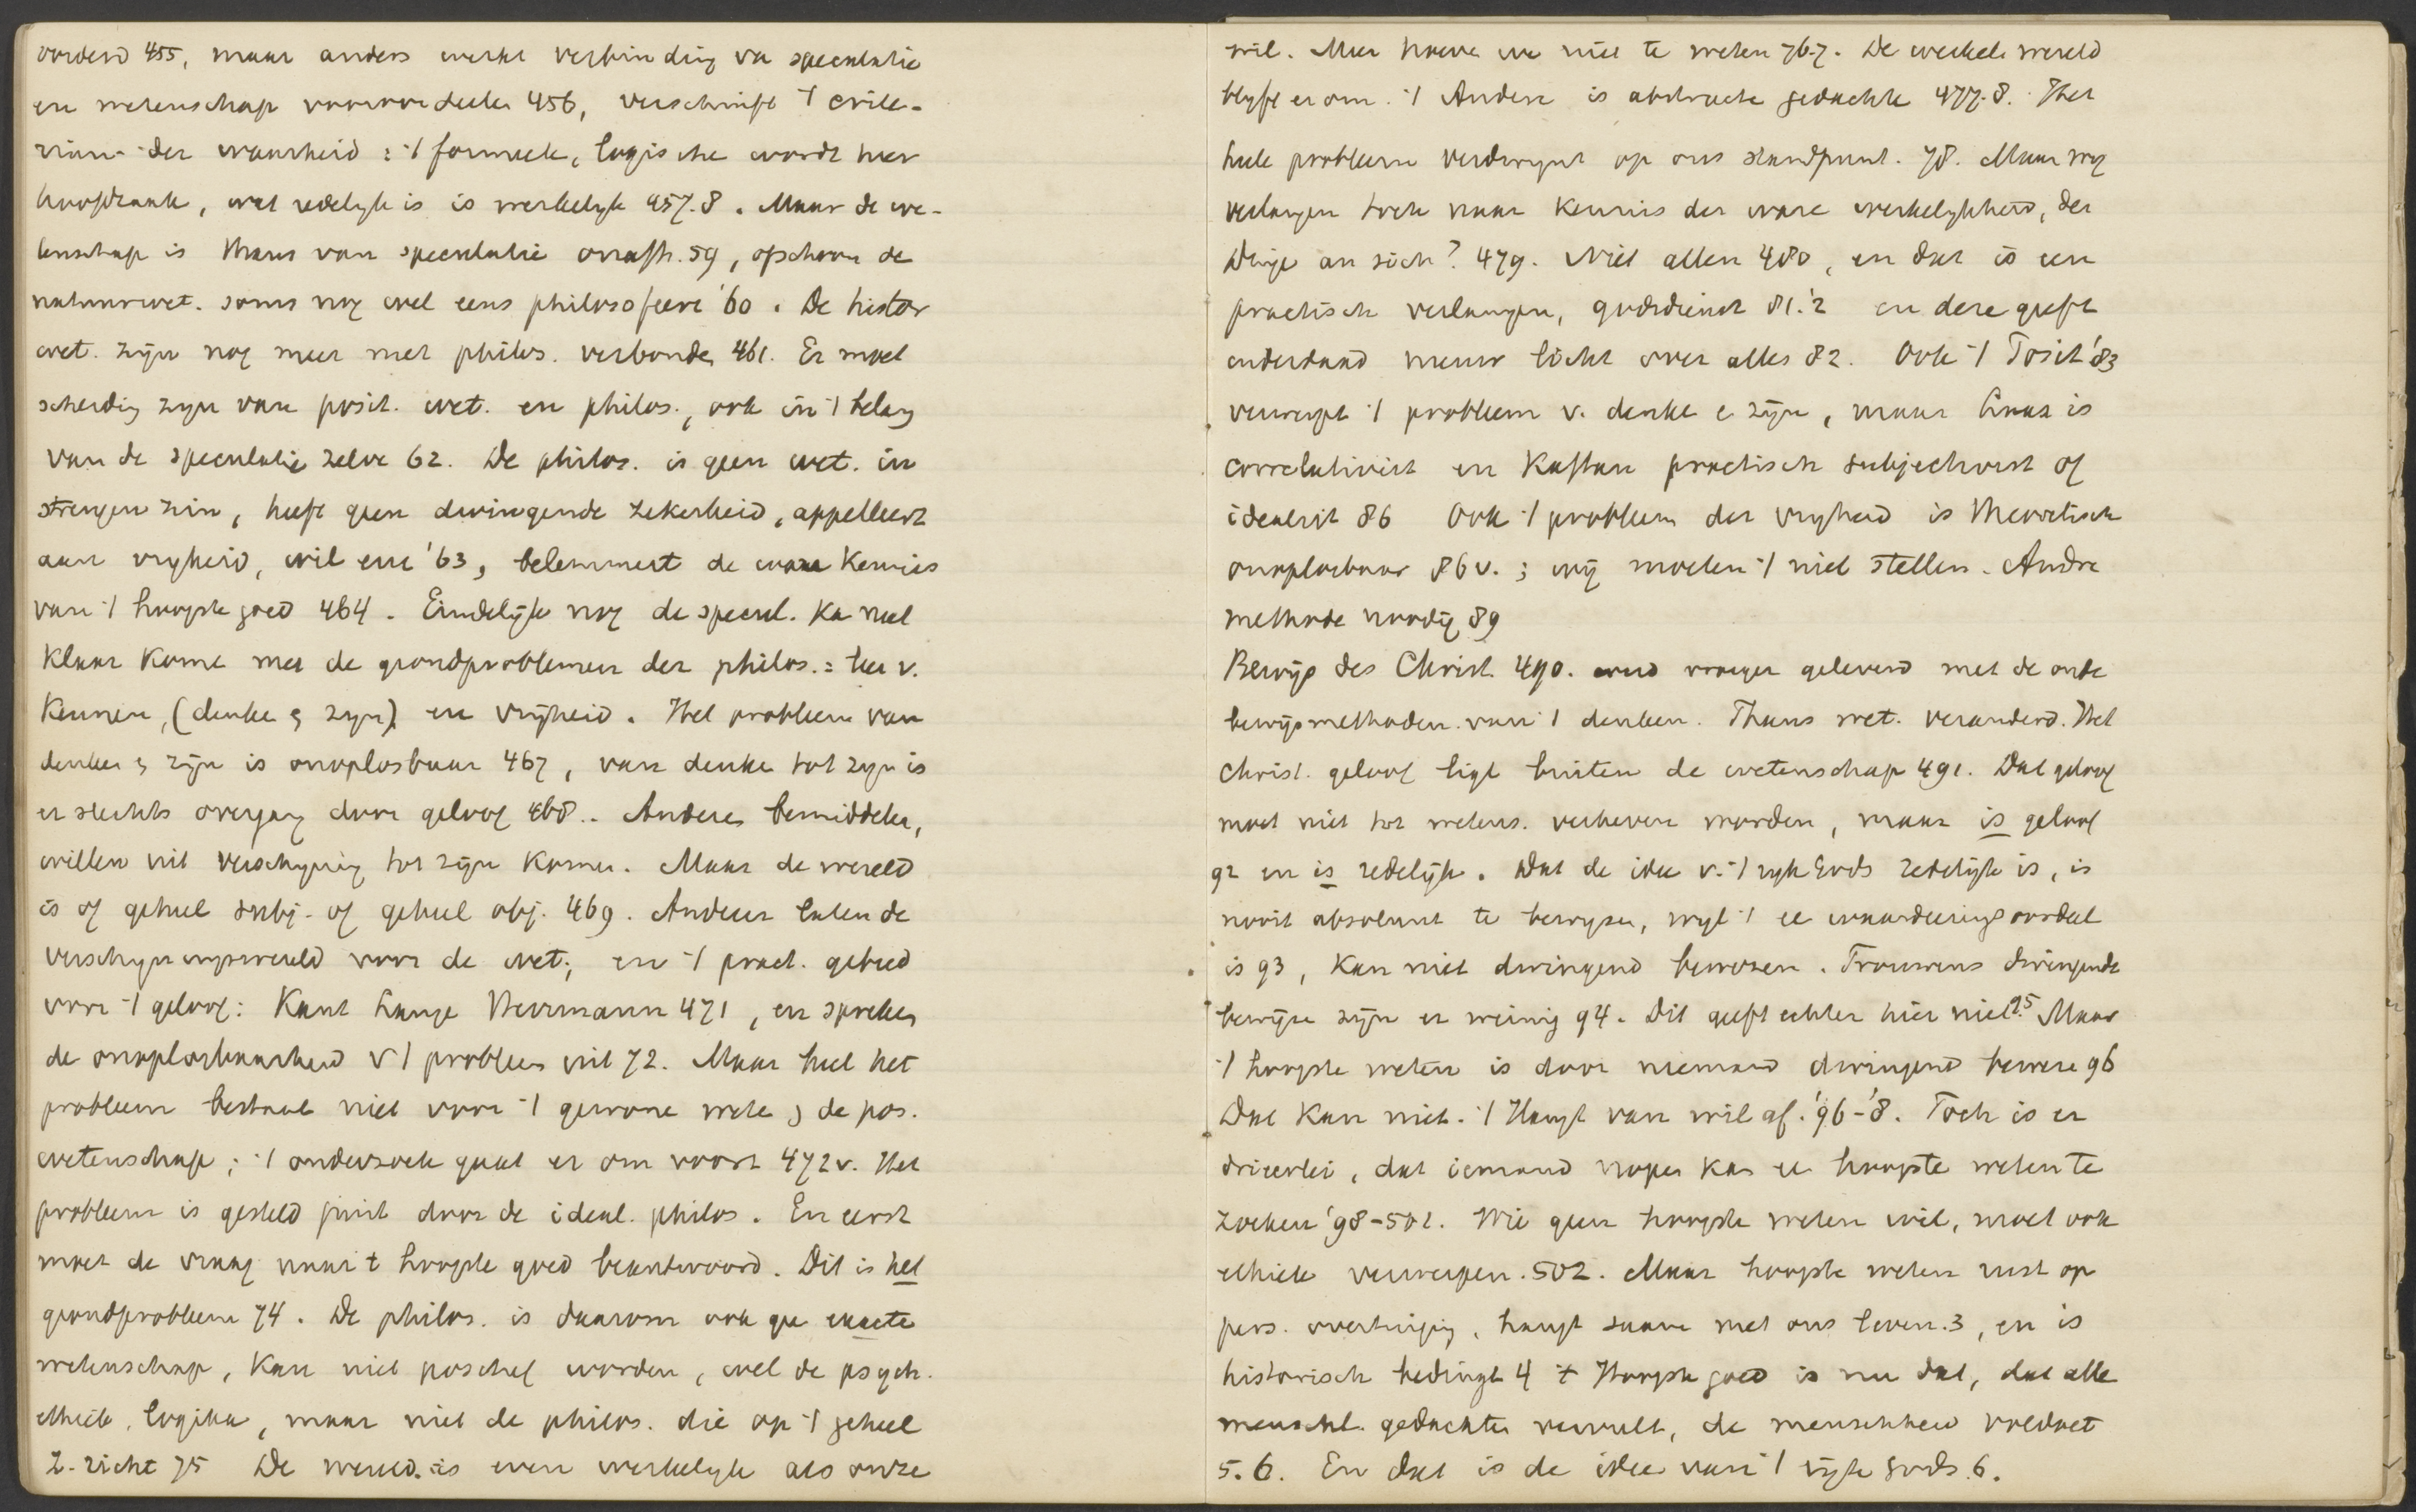 oordeel 455, maar anders werkt verbinding va speculatie
en wetenschap vooroordeelen 456, verschuift 't crite-
rium der waarheid : 't formeele, logische wordt hier
hoofdzaak, wat redelyk is is werkelyk 457.8. Maar de we-
tenschap is thans van speculatie onafh. 59, ofschoon de
natuurwet. soms nog wel eens philosofeere '60. De histor
wet. zijn nog meer met philos. verbonde 461. Er moet
scheidig zyn van posit. wet. en philos., ook in 't belag
van de speculatie zelve 62. De philos. is geen wet. in
strengen zin, heeft geen dwingende zekerheid, appelleert
aan vryheid, wil enz '63, belemmert de ware Kennis
van 't hoogste goed 464. Eindelijk nog de specul. Ka niet
klaar kome met de grondproblemen der philos. : het v.
Kennen, (denke & zyn) en vrijheid. Het probleem van
denken & zijn is onoplosbaar 467, van denke tot zyn is
er slechts overgang door geloof 468.. Anderen bemiddelen,
willen uit verschyning tot zijn komen. Maar de wereld
is of geheel subj. of geheel obj. 469. Anderen laten de
verschyningswereld voor de wet; en 't pract. gebied
voor 't geloof: Kant Lange Herrmann 471, en spreken
de onoplosbaarheid v 't probleem uit 72. Maar heel het
probleem bestaat niet voor 't gewone wete & de pos.
wetenschap; 't onderzoek gaat er om voort 472v. Het
probleem is gesteld juist door de ideal. philos. En eerst
moet de vraag naar 't hoogste goed beantwoord. Dit is het
grondprobleem 74. De philos. is daarom ook gee exacte
wetenschap, kan niet positief worden, wel de psych.
ethiek, logika, maar niet de philos. die op 't geheel
z. richt 75 De wereld is even werkelyk als onze
wil. Meer hoeve we niet te weten 76.7. De werkel. wereld
blyft er om. 't Andere is abstracte gedachte 477.8. Het
heele probleem verdwynt op ons standpunt. 78. Maar wy
verlangen toch naar kennis der ware werkelykheid, der
Dinge an sich? 479. Niet allen 480, en dat is een
practisch verlangen, godsdienst 81.'2 en deze geeft
inderdaad nieuw licht over alles 82. Ook 't Posit '83
verwerpt 't probleem v. denke e zijn, maar Laas is
correlativist en Kaftan practisch subjectivist of
idealist 86 Ook 't probleem der vryheid is theoretisch
onoplosbaar 86v. ; wij moeten 't niet stellen. Andre
methode noodig 89
Bewijs des Christ. 490. werd vroeger geleverd met de oude
bewijsmethoden van 't denken. Thans wet. veranderd. Het
christ. geloof ligt buiten de wetenschap 491. Dat geloof
moet niet tot wetens. verheven worden, maar is geloof
92 en is redelijk. Dat de idee v. 't ryk Gods redelijk is, is
nooit absoluut te bewyzen, wyl 't ee waardeeringsoordeel
is 93, kan niet dwingend bewezen. Trouwens dwingende
bewijze zijn er weinig 94. Dit geeft echter hier niet 95. Maar
't hoogste weten is door niemand dwingend beweze 96
Dat kan niet. 't Hangt van wil af. '96-'8. Toch is er
drieërlei, dat iemand nopen kan ee hoogste weten te
zoeken '98-502. Wie geen hoogste weten wil, moet ook
ethiek verwerpen. 502. Maar hoogste weten rust op
pers. overtuiging, hangt saam met ons leven. 3, en is
historisch bedingt 4 't Hoogste goed is nu dat, dat alle
menschl. gedachten vervult, de menschheid voldoet
5. 6. En dat is de idee van 't rijk Gods. 6.